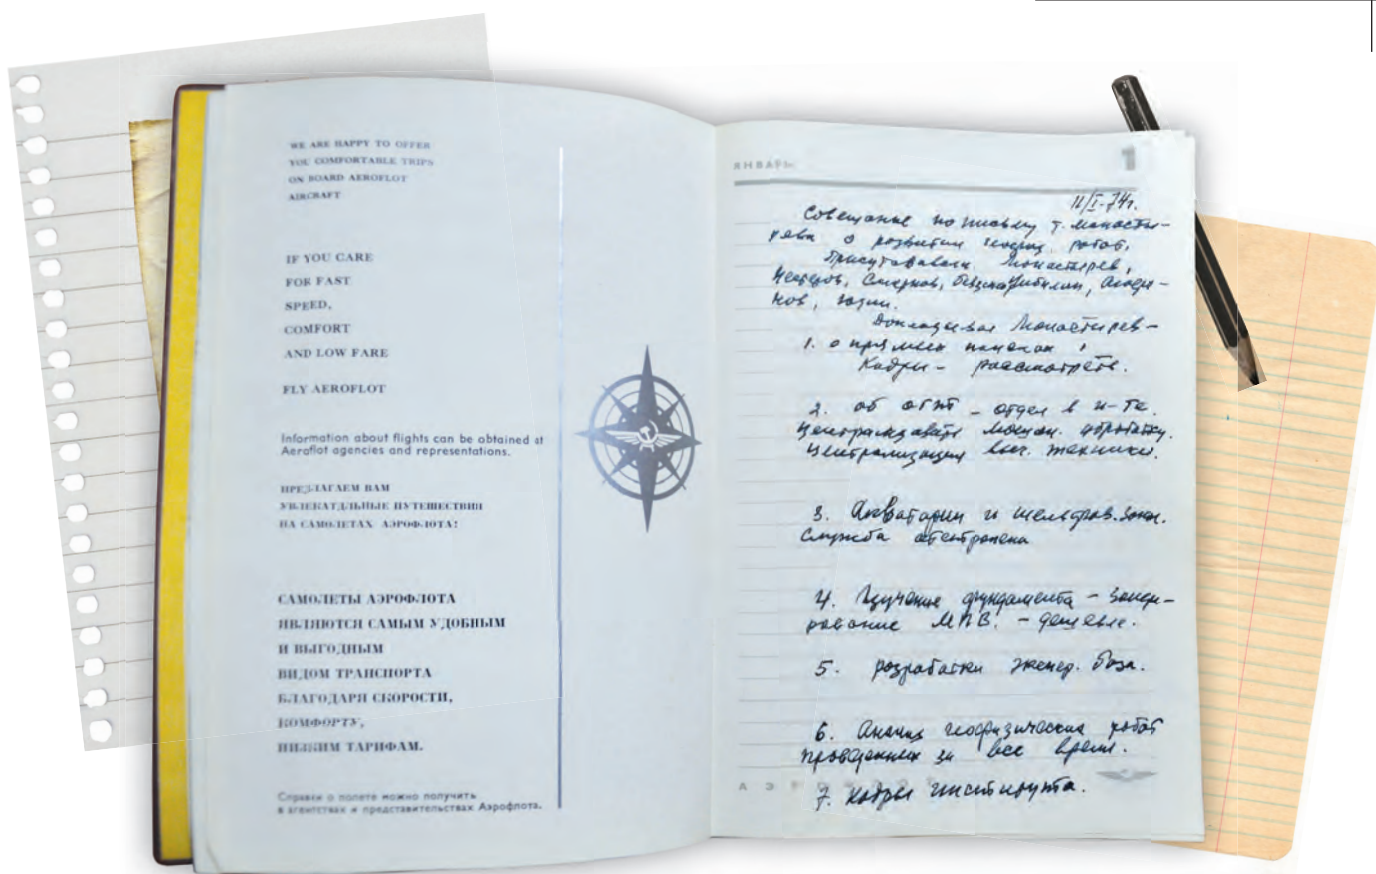 WE ARE HAPPY TO OFFER
YOU COMFORTABLE TRIPS
ON BOARD AEROFLOT
AIRCRAFT
IF YOU CARE
FOR FAST
SPEED,
COMFORT
AND LOW FARE
FLY AEROFLOT
Information about flights can be obtained at
Aeroflot agencies and representations.
ПРЕДЛАГАЕМ ВАМ
УВЛЕКАТДЛЬНЫЕ ПУТЕШЕСТВИЯ
НА САМОЛЕТАХ АЭРОФЛОТА!
САМОЛЕТЫ АЭРОФЛОТА
ЯВЛЯЮТСЯ САМЫМ УДОБНЫМ
И ВЫГОДНЫМ
ВИДОМ ТРАНСПОРТА
БЛАГОДАРЯ СКОРОСТИ,
КОМФОРТУ,
НИЗКИМ ТАРИФАМ.
Справки о полете можно получить
в агентствах и представительствах Аэрофлота.
ЯНВАРЬ 1
11/I-74г.
Совещание по письму т. Монасты-
рева о развитии геофиз. работ.
Присутствовали Монастырев,
Нестеров, Смирнов,
нов,
Докладывал Монастырев -
1. о прямых поисках
Кадры - рассмотреть.
2. об - отдел в и-те.
обработку.
централизация выч. техники.
3. Акватории и шельфов. зоны.
Служба
4. Изучение фундамента -
МПВ. - дешевле.
5. разработки база.
6. Анализ геофизических работ
проведенных за все время.
АЭРОФЛОТ
7. Кадры института.